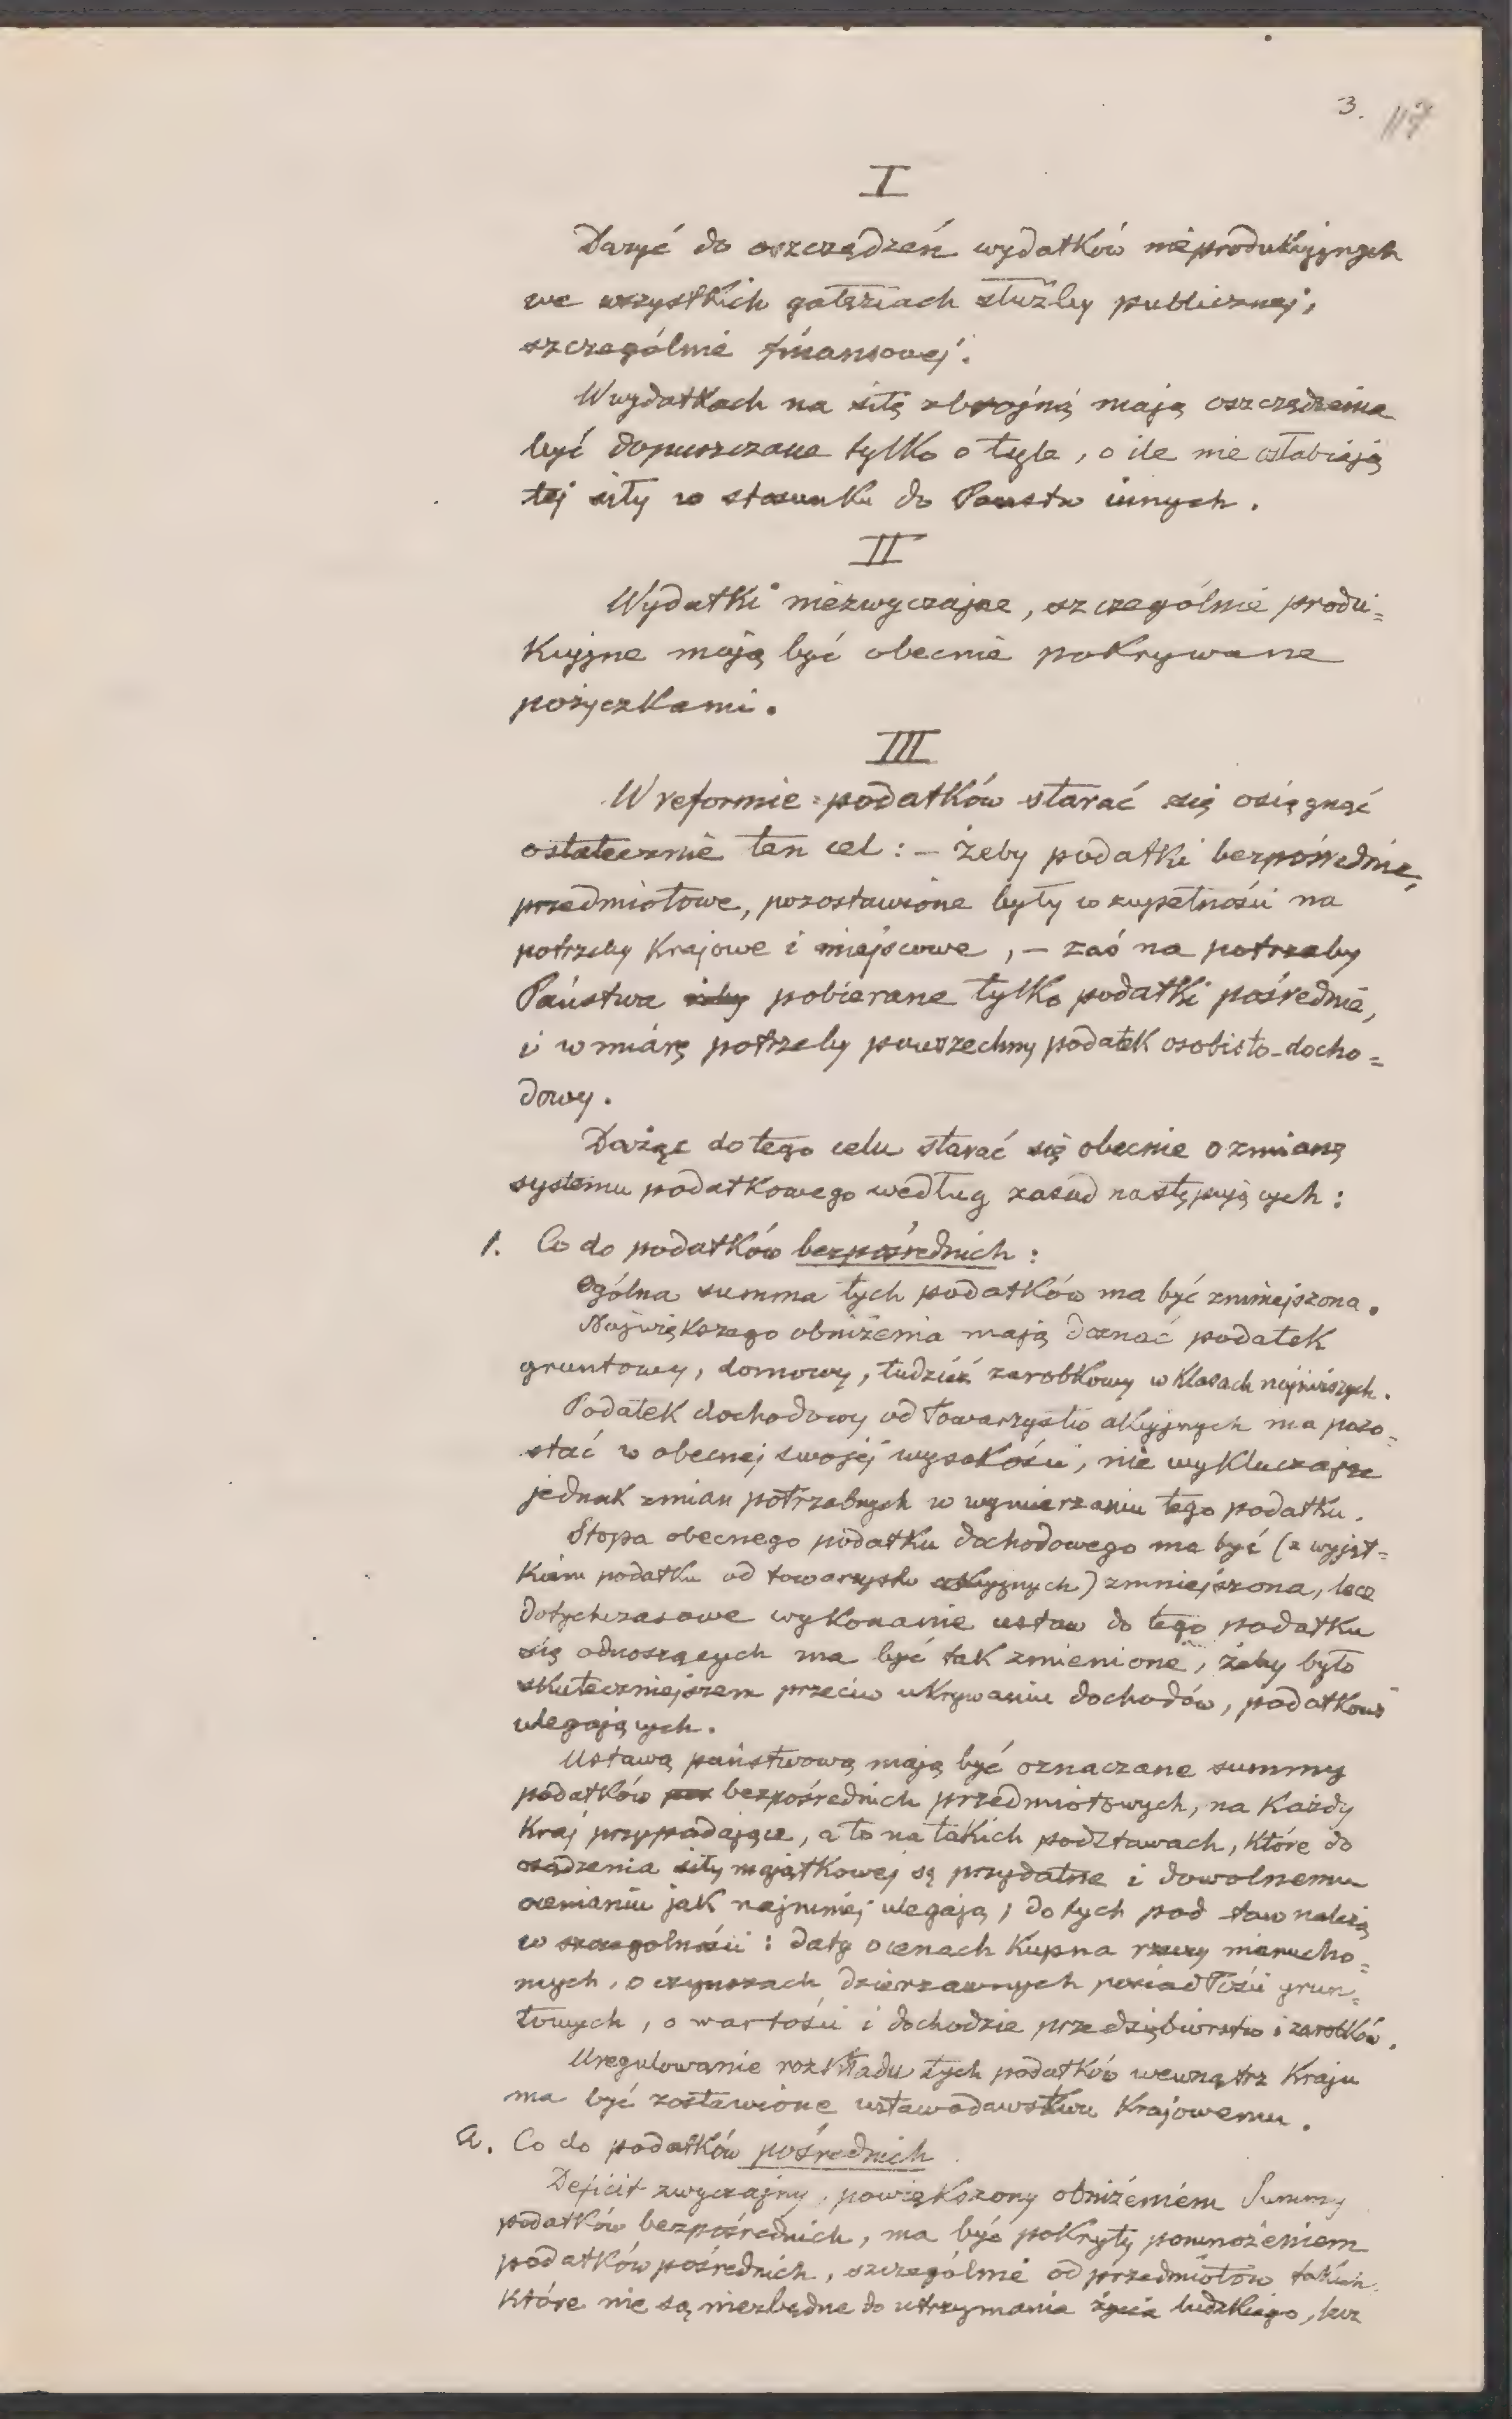 3. 117
I
Dązyć do oszczędzeń wydatków nieprodukcyjnych
we wszystkich gałęziach służby publicznej,
szczególnie finansowej.
W wydatkach na siłę zbrojną mają oszczędzenia
być dopuszczane tylko o tyle, o ile nie osłabiają
tej siły w stosunku do Państw innych.
II
Wydatki niezwyczajne, szczególnie produ=
kcyjne mają być obecnie pokrywane
pożyczkami.
III
W reformie podatków starać się osiągnąć
ostatecznie ten cel: – żeby podatki bezpośrednie,
przedmiotowe, pozostawione były w zupełności na
potrzeby krajowe i miejscowe, – zaś na potrzeby
Państwa pobierane tylko podatki pośrednie,
i w miarę potrzeby powszechny podatek osobisto-docho=
dowy.
Dążąc do tego celu starać się obecnie o zmianę
systemu podatkowego według zasad następujących:
1. Co do podatków bezpośrednich:
Ogólna summa tych podatków ma być zmniejszona.
Największego obniżenia mają doznać podatek
gruntowy, domowy, tudzież zarobkowy w klasach najniższych.
Podatek dochodowy od towarzystw akcyjnych ma pozo=
stać w obecnej swojej wysokości, nie wykluczając
jednak zmian potrzebnych w wymierzaniu tego podatku.
Stopa obecnego podatku dochodowego ma być (z wyjąt=
kiem podatku od towarzystw akcyjnych) zmniejszona, lecz
dotychczasowe wykonanie ustaw do tego podatku
się odnoszących ma być tak zmienione, żeby było
skuteczniejszem przeciw ukrywaniu dochodów, podatkowi
ulegających.
Ustawą państwową mają być oznaczane summy
podatków bezpośrednich przedmiotowych, na każdy
kraj przypadające, a to na takich podstawach, które do
osądzenia siły majątkowej są przydatne i dowolnemu
ocenianiu jak najmniej ulegają; do tych podstaw należą
w szczególności: daty o cenach kupna rzeczy nierucho=
mych, o czynszach dzierżawnych posiadłości grun=
towych, o wartości i dochodzie przedsiębiorstw i zarobków.
Uregulowanie rozkładu tych podatków wewnątrz kraju
ma być zostawione ustawodawstwu krajowemu.
2. Co do podatków pośrednich
Deficit zwyczajny, powiększony obniżeniem Summy
podatków bezpośrednich, ma być pokryty pomnożeniem
podatków pośrednich, szczególnie od przedmiotów takich
które nie są niezbędne do utrzymania życia ludzkiego, lecz